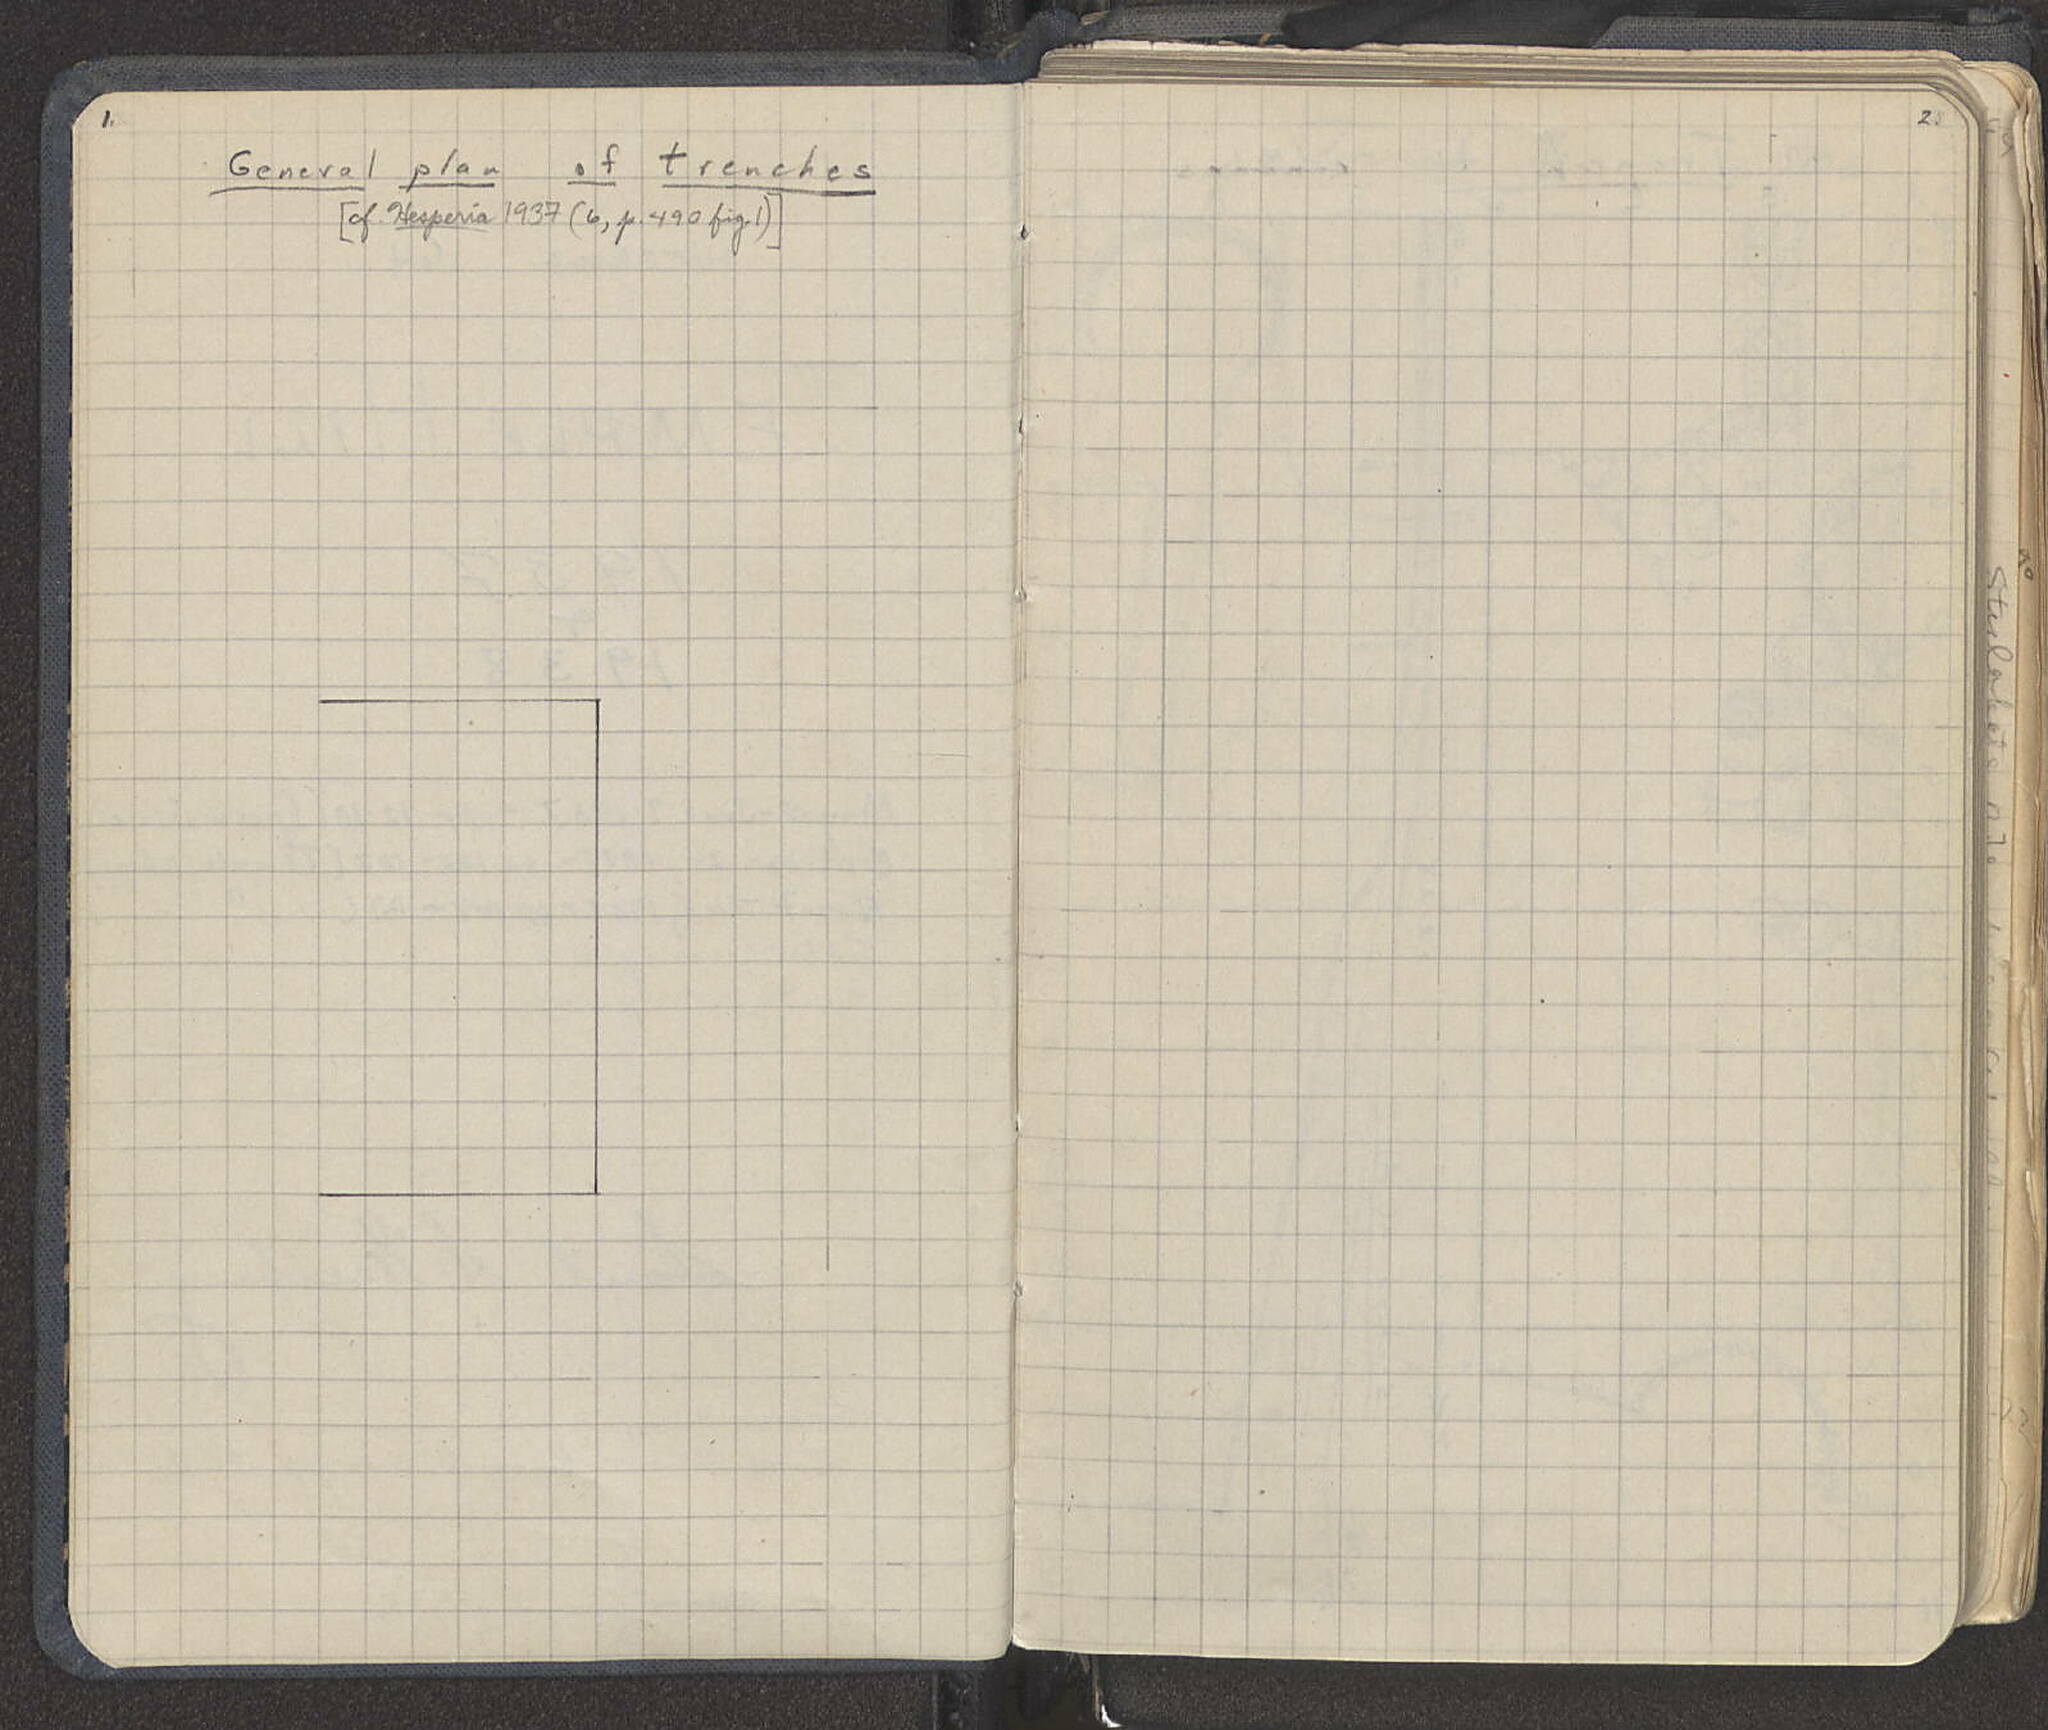 1.
General plan of trenches
[cf. Hesperia 1937 (6, p. 490 fig. 1)]
2.